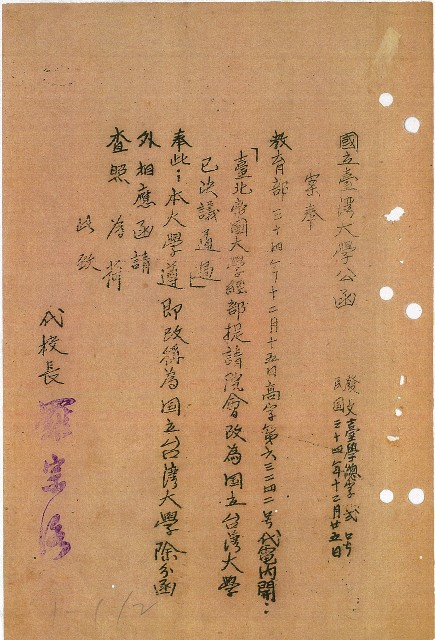 國立臺灣大學公函
發文臺學總字弍号
民国三十四年十二月廿五日
案奉
教育部三十四年十二月十五日高字第六三二四二号代電內開：
「臺北帝國大学經部提請院會改為国立台灣大學
已決議通過」
奉此：本大學遵即改稱為国立台灣大學除分函
外相應函請
查照為荷
此致
代校長
羅宗洛